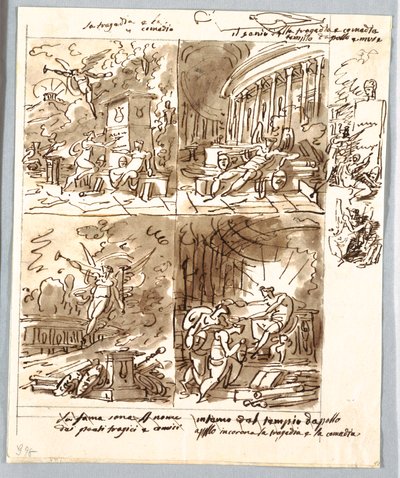 la tragedia e la
comedia
il genio della tragedia e comedia
templo d'apollo e muse
la fama sona il nome
dei poeti tragici e comici
interno del tempio dapollo
apollo incorona la tragedia e la comedia